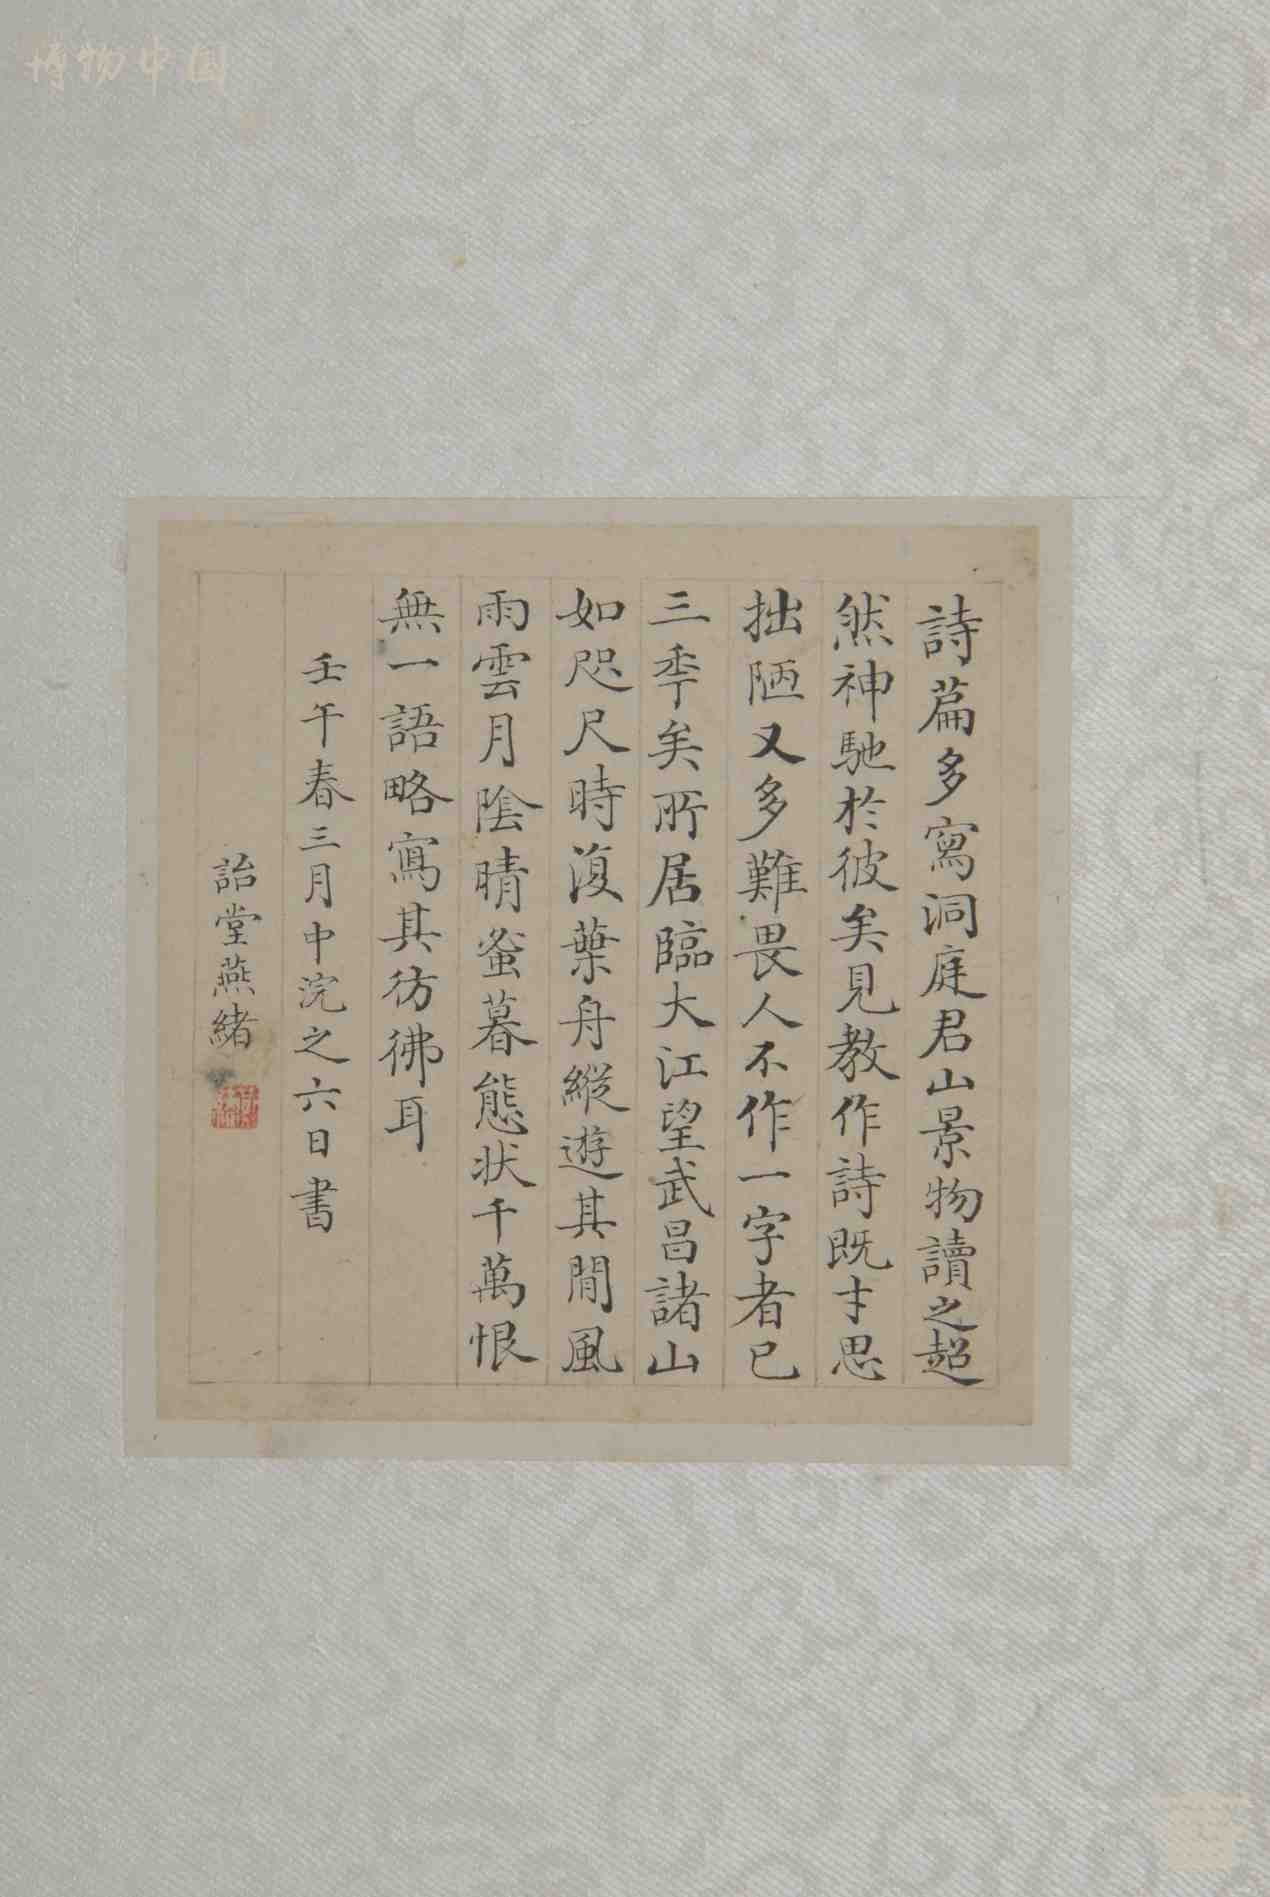 博物中国
詩篇多寫洞庭君山景物讀之超
然神馳於彼矣見教作詩既才思
拙陋又多難畏人不作一字者已
三秊矣所居臨大江望武昌諸山
如咫尺時復葉舟縱遊其間風
雨雲月陰晴蚤暮態狀千萬恨
無一語略寫其彷彿耳
壬午春三月中浣之六日書
詒堂燕緒